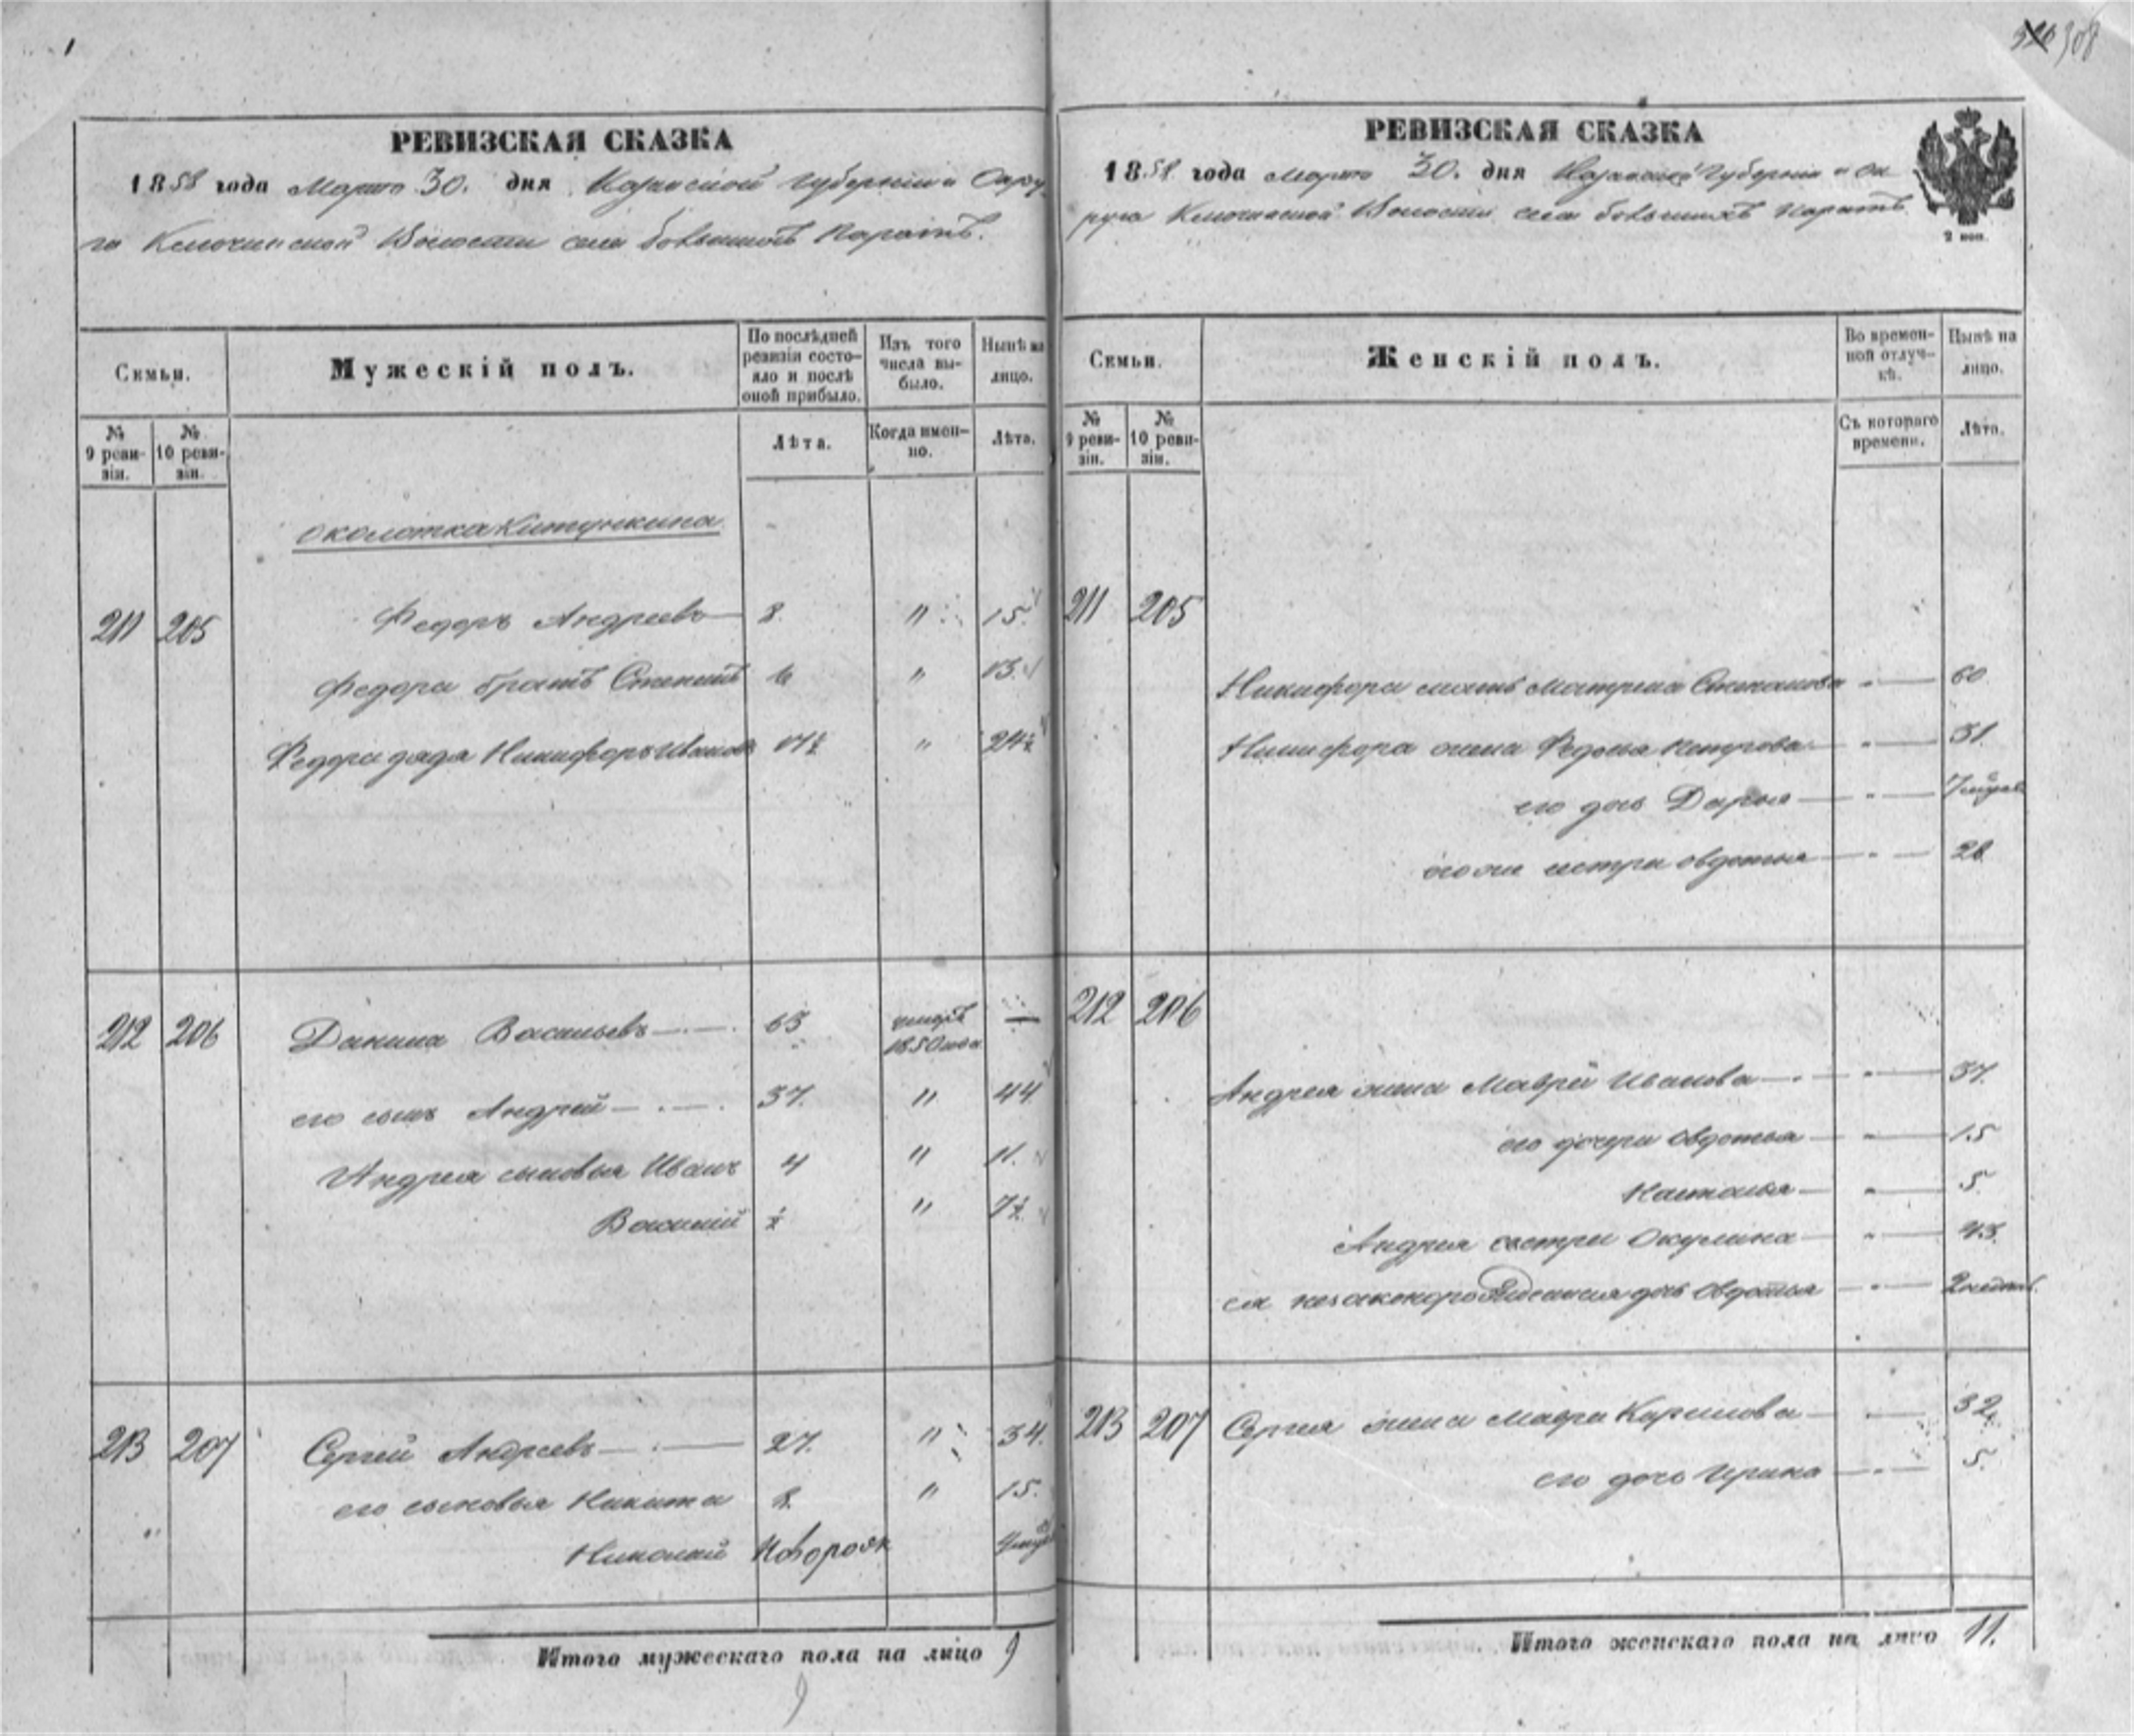 308
РЕВИЗСКАЯ СКАЗКА
1858 года Марта 30. дня Казанской Губернии и Окру
га Ключинской Волости села Большихъ Паратъ.
Семьи.
Мужескій полъ.
По послѣдней ревизіи состо-
яло и послѣ оной прибыло.
Изъ того числа вы-
было.
Нынѣ на лицо.
№ 9 реви-
зіи.
№ 10 реви-
зіи.
Лѣта.
Когда имен-
но.
Лѣта.
околотка
211 205 Федоръ Андреевъ 8. " 15
Федора братъ Степанъ 6 " 13
Федора дядя Никифоръ Ивановъ 17½ " 24½
212 206 Данила Васильевъ 63 умеръ 1850 года —
его сынъ Андрей 37. " 44
Андрея сыновья Иванъ 4 " 11.
Василій ½ " 7½
213 207 Сергей Андреевъ 27. " 34.
его сыновья Никита 8. " 15.
Николай Новорож
Итого мужескаго пола на лицо 9
9
РЕВИЗСКАЯ СКАЗКА
1858 года Марта 30. дня Казанской Губерніи и Ок
руга Ключинской Волости села Большихъ Паратъ
2 коп.
Семьи.
Женскій полъ.
Во времен-
ной отлуч-
кѣ.
Нынѣ на лицо.
№ 9 реви-
зіи.
№ 10 реви-
зіи.
Съ котораго времени.
Лѣта.
211 205
Никифора мать Матрена Степанова " 60
Никифора жена Федосья Петрова " 31.
его дочь Дарья "
его же сестра Овдотья " 28
212 206
Андрея жена Мавра Иванова " 37.
его дочери Овдотья " 15
Наталья " 5.
Андрея сестра Окулина " 43.
ея незаконорожденная дочь Овдотья "
213 207 Сергея жена Мавра Карпилова 32.
его дочь Ирина " 5.
Итого женскаго пола на лицо 11.